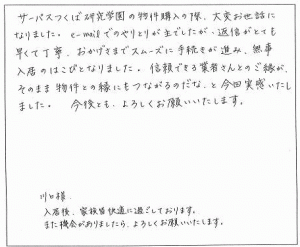 サーパスつくば研究学園の物件購入の際、大変お世話に
なりました。e-mailでのやりとりが主でしたが、返信がとても
早くて丁寧、おかげさまでスムーズに手続きが進み、無事
入居のはこびとなりました。信頼できる業者さんとのご縁が、
そのまま物件との縁にもつながるのだな、と今回実感いたし
ました。今後とも、よろしくお願いいたします。
川口様
入居後、家族皆快適に過ごしております。
また機会がありましたら、よろしくお願いいたします。